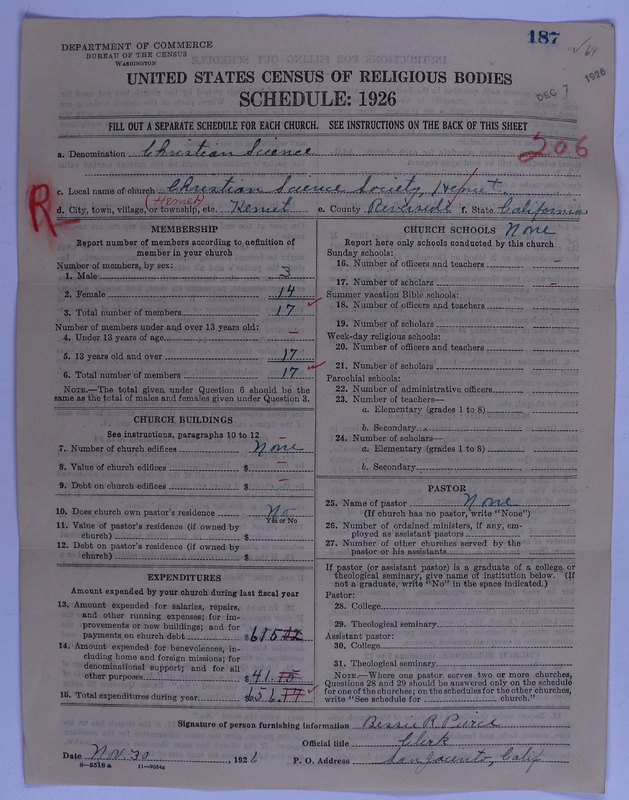 187
69
DEPARTMENT OF COMMERCE
BUREAU OF THE CENSUS
WASHINGTON
DEC 7 1926
UNITED STATES CENSUS OF RELIGIOUS BODIES
SCHEDULE: 1926
FILL OUT A SEPARATE SCHEDULE FOR EACH CHURCH. SEE INSTRUCTIONS ON THE BACK OF THIS SHEET
206
a. Denomination Christian Science
c. Local name of church Christian Science Society, Hemet
R
(Hemet)
d. City, town, village, or township, etc. Hemet e. County Riverside f. State California
MEMBERSHIP
Report number of members according to definition of
member in your church
Number of members, by sex:
1. Male 3
2. Female 14
3. Total number of members 17
Number of members under and over 13 years old:
4. Under 13 years of age –
5. 13 years old and over 17
6. Total number of members 17
NOTE.—The total given under Question 6 should be the
same as the total of males and females given under Question 3.
CHURCH BUILDINGS
See instructions, paragraphs 10 to 12
7. Number of church edifices None
8. Value of church edifices $ –
9. Debt on church edifices $ –
10. Does church own pastor's residence No
Yes or No
11. Value of pastor's residence (if owned by
church) $
12. Debt on pastor's residence (if owned by
church) $
EXPENDITURES
Amount expended by your church during last fiscal year
13. Amount expended for salaries, repairs,
and other running expenses; for im-
provements or new buildings; and for
payments on church debt $615
14. Amount expended for benevolences, in-
cluding home and foreign missions; for
denominational support; and for all
other purposes $41.
15. Total expenditures during year 656.
CHURCH SCHOOLS None
Report here only schools conducted by this church
Sunday schools:
16. Number of officers and teachers –
17. Number of scholars –
Summer vacation Bible schools:
18. Number of officers and teachers
19. Number of scholars
Week-day religious schools:
20. Number of officers and teachers
21. Number of scholars
Parochial schools:
22. Number of administrative officers
23. Number of teachers—
a. Elementary (grades 1 to 8)
b. Secondary
24. Number of scholars—
a. Elementary (grades 1 to 8)
b. Secondary
PASTOR
25. Name of pastor None
(If church has no pastor, write "None")
26. Number of ordained ministers, if any, em-
ployed as assistant pastors
27. Number of other churches served by the
pastor or his assistants
If pastor (or assistant pastor) is a graduate of a college or
theological seminary, give name of institution below. (If
not a graduate, write "No" in the space indicated.)
Pastor:
28. College
29. Theological seminary
Assistant pastor:
30. College
31. Theological seminary
NOTE.—Where one pastor serves two or more churches,
Questions 28 and 29 should be answered only on the schedule
for one of the churches; on the schedules for the other churches,
write "See schedule for church."
Signature of person furnishing information Bessie R Pierce
Official title Clerk
Date Nov. 30, 1926 P. O. Address San Jacinto, Calif
8—5518 a 11—9054a